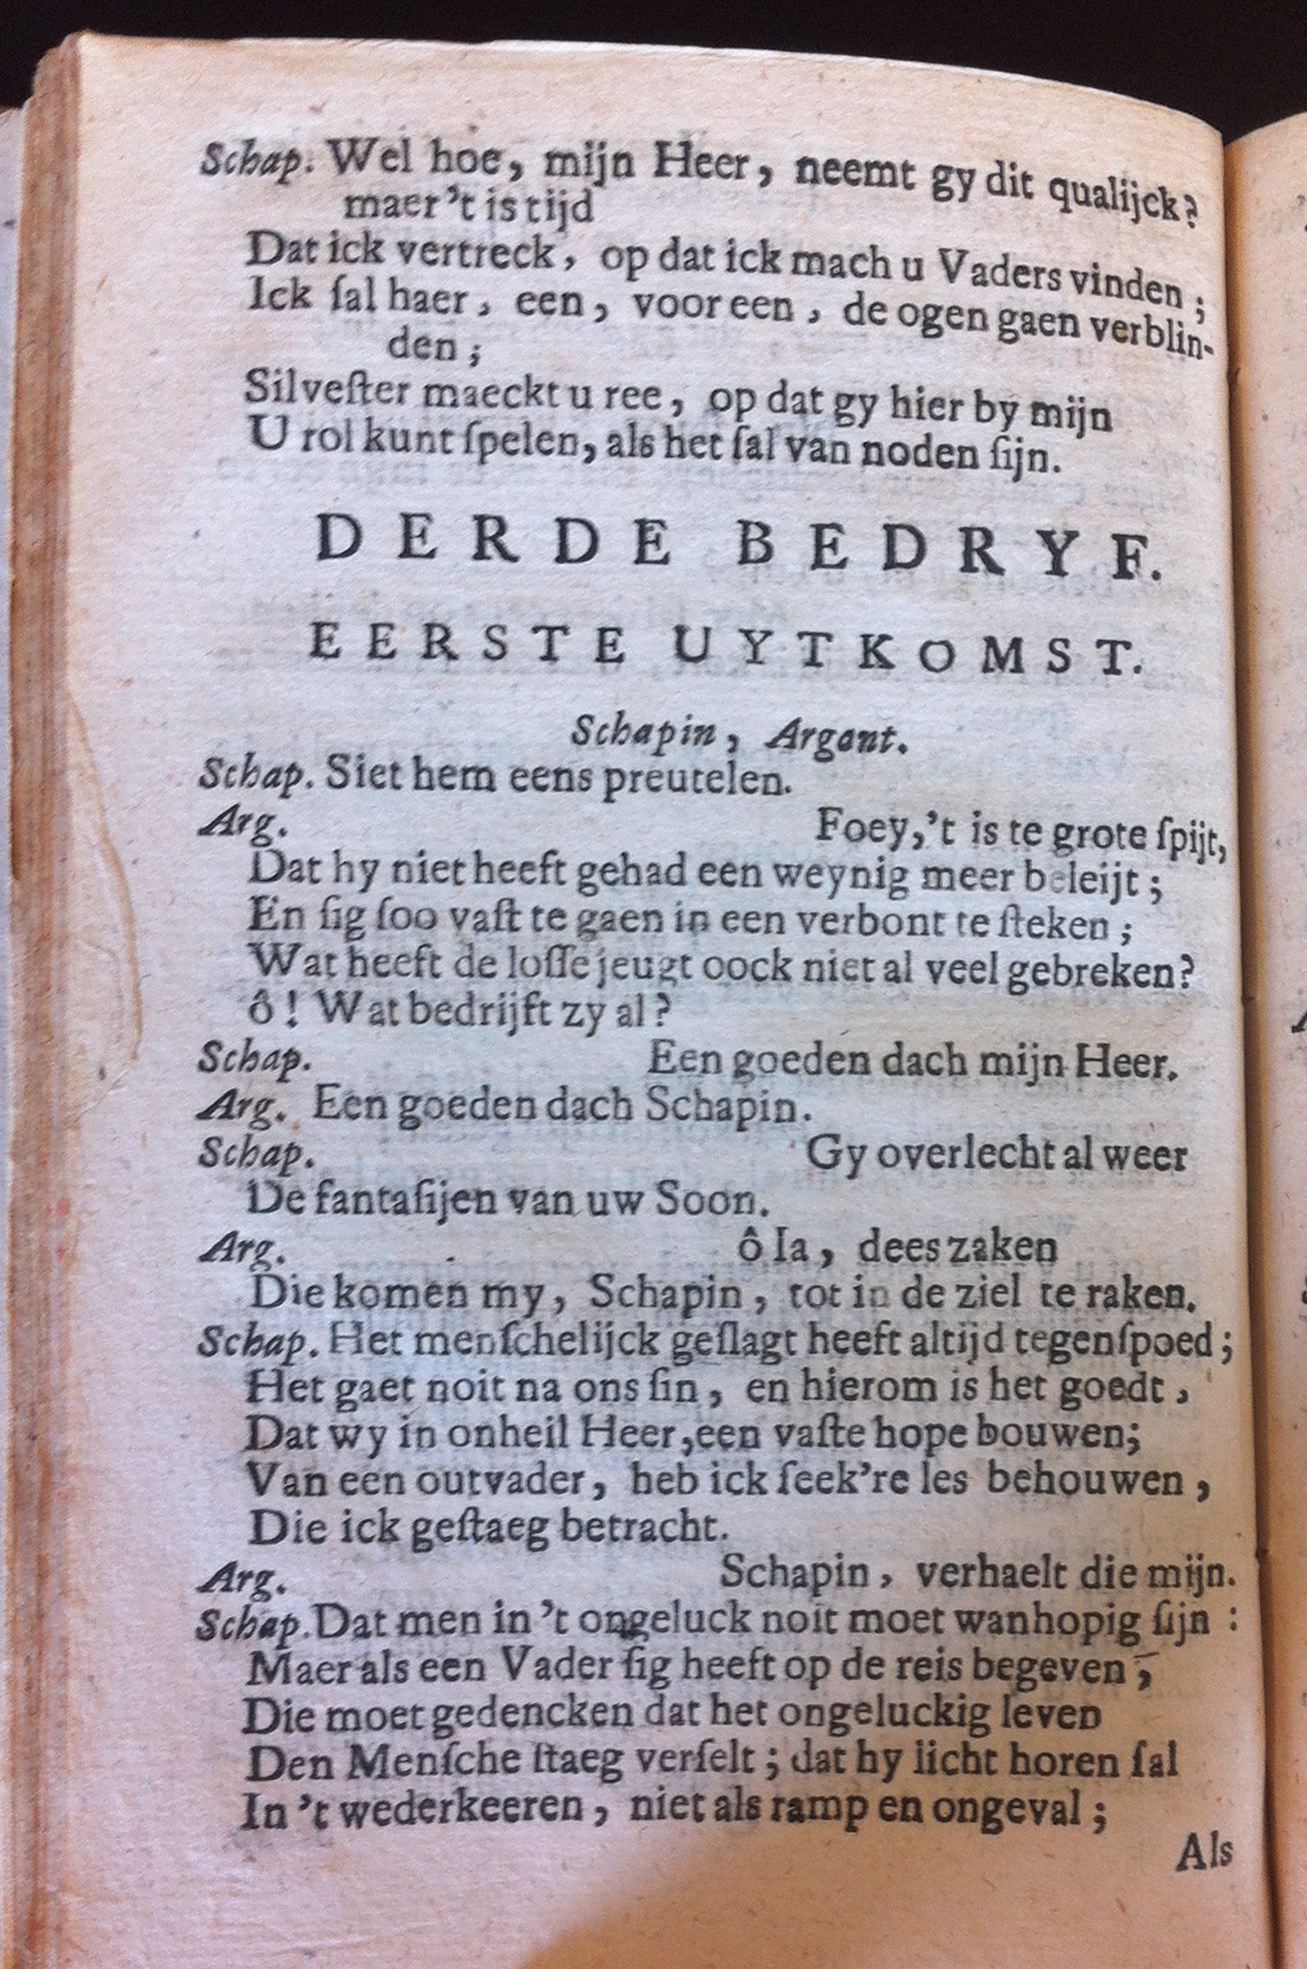 Schap. Wel hoe, mijn Heer, neemt gy dit qualijck?
maer 't is tijd
Dat ick vertreck, op dat ick mach u Vaders vinden;
Ick ſal haer, een, voor een, de ogen gaen verblin-
den;
Silveſter maeckt u ree, op dat gy hier by mijn
U rol kunt ſpelen, als het ſal van noden ſijn.
DERDE BEDRYF.
EERSTE UYTKOMST.
Schapin, Argant.
Schap. Siet hem eens preutelen.
Arg. Foey, 't is te grote ſpijt,
Dat hy niet heeft gehad een weynig meer beleijt;
En ſig ſoo vaſt te gaen in een verbont te ſteken;
Wat heeft de loſſe jeugt oock niet al veel gebreken?
ô! Wat bedrijft zy al?
Schap. Een goeden dach mijn Heer.
Arg. Een goeden dach Schapin.
Schap. Gy overlecht al weer
De fantaſijen van uw Soon.
Arg. ô Ia, dees zaken
Die komen my, Schapin, tot in de ziel te raken.
Schap. Het menſchelijck geſlagt heeft altijd tegenſpoed;
Het gaet noit na ons ſin, en hierom is het goedt,
Dat wy in onheil Heer, een vaſte hope bouwen;
Van een outvader, heb ick ſeek're les behouwen,
Die ick geſtaeg betracht.
Arg. Schapin, verhaelt die mijn.
Schap. Dat men in 't ongeluck noit moet wanhopig ſijn:
Maer als een Vader ſig heeft op de reis begeven,
Die moet gedencken dat het ongeluckig leven
Den Menſche ſtaeg verſelt; dat hy licht horen ſal
In 't wederkeeren, niet als ramp en ongeval;
Als